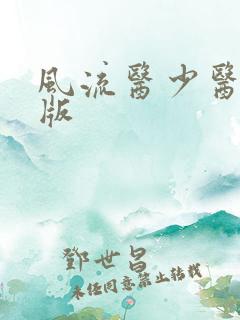 風流醫少醫
版
鄧世昌
未經同意禁止轉載